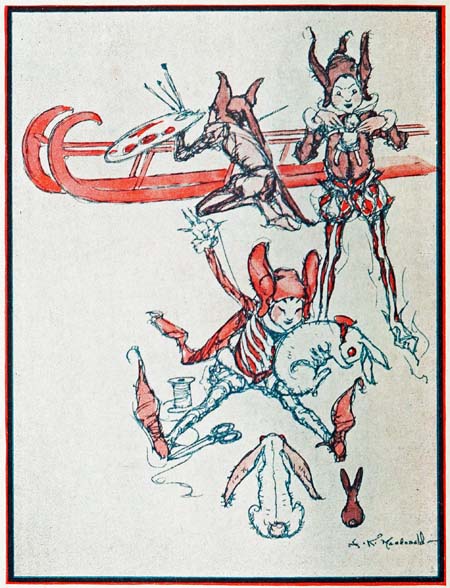 A. K. Macdonald